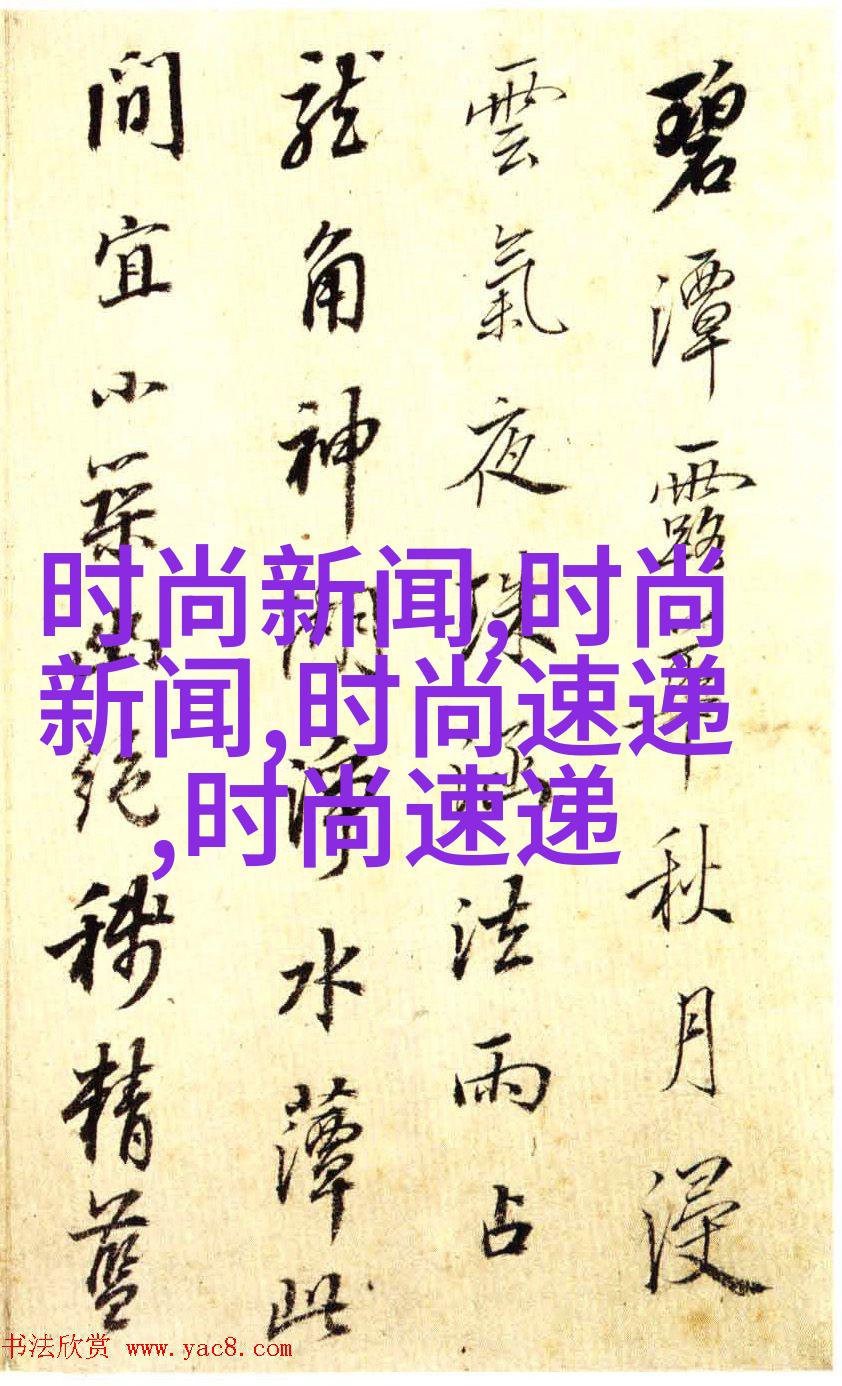 碧潭露華秋月浸
雲氣夜法雨占
龍角神淨水藫此
間宜小築幽絕稱精藍
时尚新闻,时尚
新闻,时尚速递
,时尚速递
书法欣赏 www.yac8.com